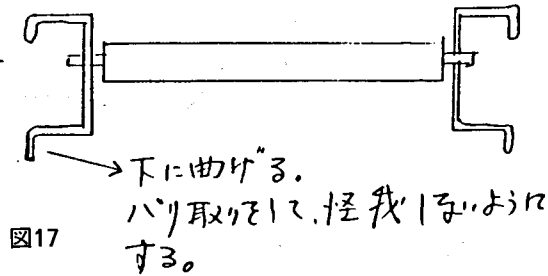 下に曲げる。
バリ取りをして、怪我しないように
する。
図17